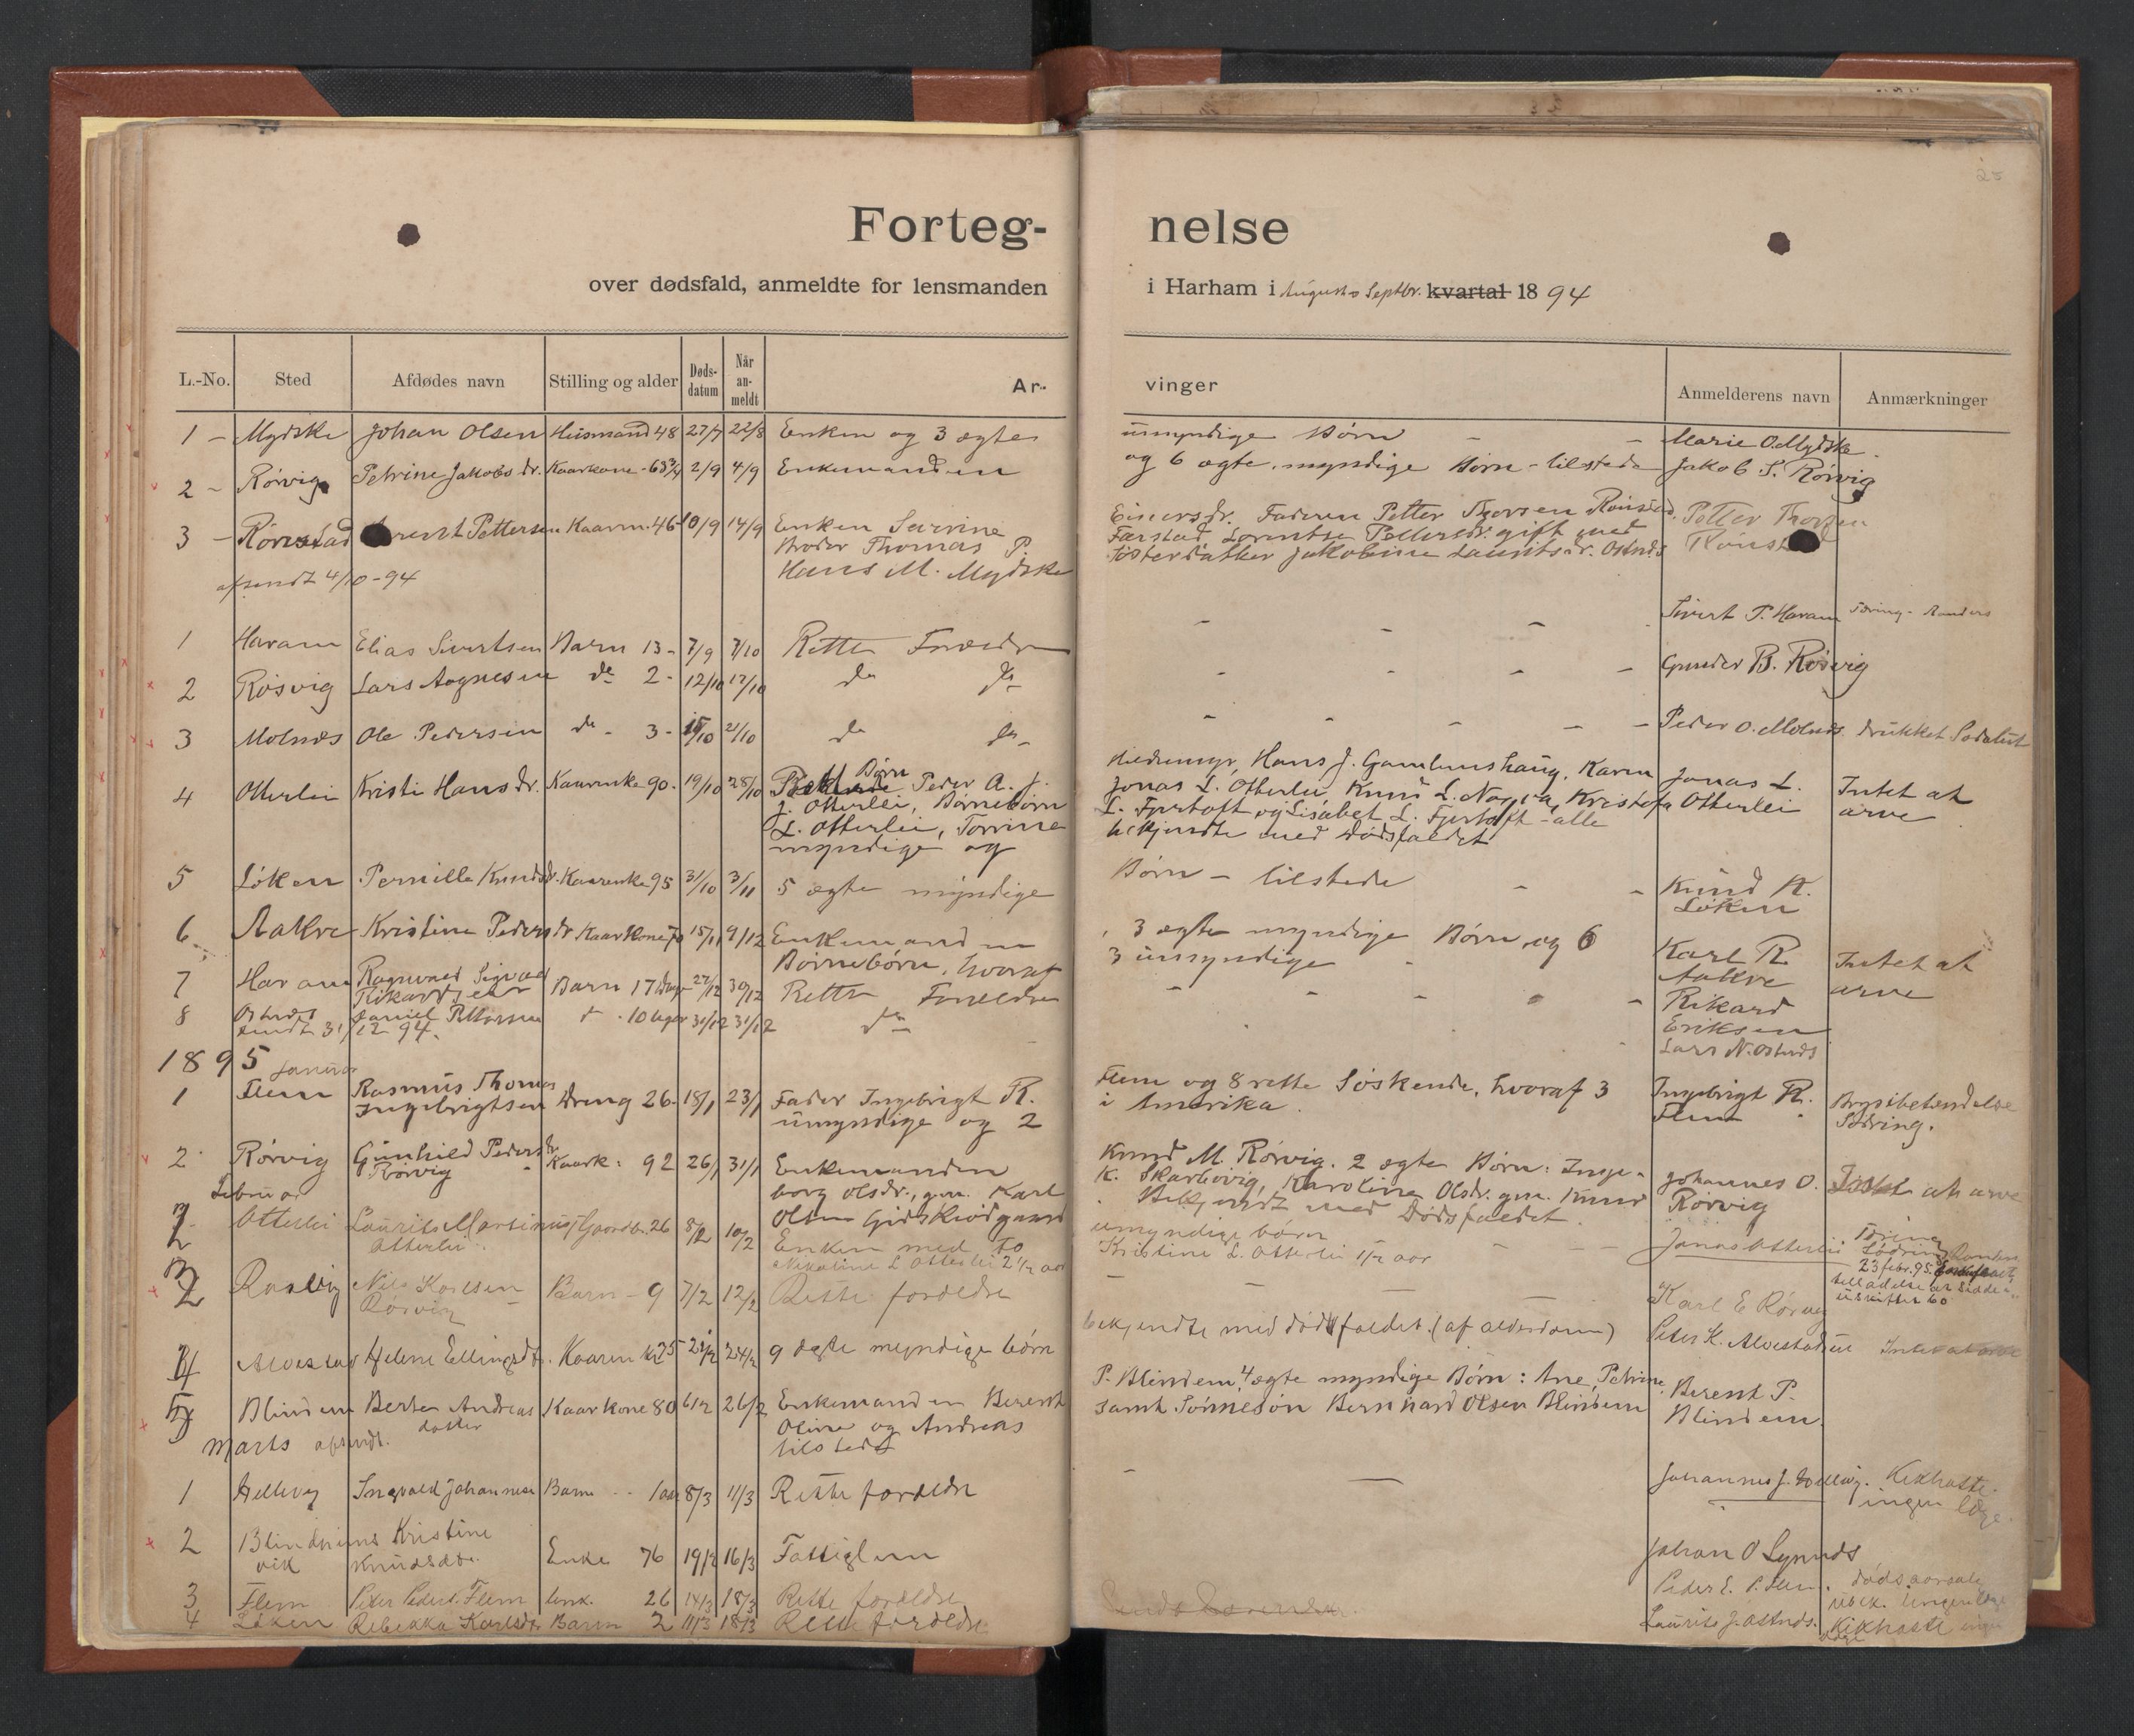 25
Forteg-
nelse
over dødsfald, anmeldte for lensmanden
i Harham i Augusto Septbr. kvartal 1894
L.-No. Sted Afdødes navn Stilling og alder Døds-datum Når an-meldt Ar-
vinger Anmelderens navn Anmærkninger
1 - Mydske Johan Olsen Husmand 48 27/7 22/8 Enken og 3 ægte
umyndige Børn - - Marie O. Mydske
2 - Rørvig Petrine Jakobsdr. Kaarkone - 68 3/4 2/9 4/9 Enkemanden
og 6 ægte myndige Børn - tilstede Jakob S. Rørvig
3 - Rønstad Pettersen Kaarm. 46 10/9 14/9 Enken Severine
Einersdr. Faderen Petter Thorsen Rønstad. Petter Thorsen
Broder Thomas P.
Færstad Lorentse Pettersdr. gift med Rønstad
Hans M. Mydske
Søsterdatter Jakobine Lauritsdr. Ostnæs
afsendt 4/10-94
1 Haram Elias Sivertsen Barn 13 - 7/9 7/10 Rette Forældre
- - - Sivert P. Haram Tæring - Randers
2 Røsvig Lars Aagnesen do 2 - 12/10 17/10 do do
- - - - Gunder B. Røsvig
3 Molnæs Ole Pedersen do - 3 - 15/10 21/10 do do
- - - - - Peder O. Molnæs drukket Sodalut
4 Otterlei Kristi Hansdr. Kaarenke 90 - 19/10 28/10 Børn Peder A. J.
Hans J. Gamlemshaug, Karen Jonas L. Intet at
J. Otterlei, Børnebørn
Jonas L. Otterlei Knud L. Nogva, Kristofa Otterlei arve
L. Otterlei, Torrine
L. Fjørtoft og Lisabet L. Fjørtoft - alle
myndige og
bekjendte med Dødsfaldet
5 Løken Pernille Knudsdr. Kaarenke 95 31/10 3/11 5 ægte myndige
Børn - tilstede - - Knud K.
Løken
6 Aakre Kristine Pedersdr Kaarkone 70 15/11 9/12 Enkemanden
3 ægte myndige Børn og 6 Karl R. Intet at
Børnebørn, hvoraf
3 umyndige - Aakre arve
7 Haram Ragnvald Sigvald Rikardsen Barn 17 Dage 27/12 30/12 Rette Forældre
- - - - Rikard
Eriksen
8 Ostnæs Daniel Pettersen d - 10 uger 31/12 31/12 do
Lars N. Ostnæs
sendt 31/12 94.
1895 januar
1 Flem Rasmus Thomas Ingebrigtsen Dreng 26 - 18/1 23/1 Fader Ingebrigt R.
Flem og 8 rette Søskende, hvoraf 3 Ingebrigt R. Brystbetændelse
umyndige og 2
i Amerika. Flem Lødring.
2 Rørvig Gunhild Pedersdr Rørvig Kaark. 92 26/1 31/1 Enkemanden
Knud M. Rørvig. 2 ægte Børn: Inge- Johannes O. Intet at arve
borg Olsdr., gm. Karl
K. Skarbøvig, Karoline Olsdr. gm. Knud Rørvig
Olsen Gidskeødegaard
Bekjendt med Dødsfaldet.
Februar
2 Otterlei Laurits Martinus Otterlei Gaardbr. 26 8/2 10/2 Enken med to
umyndige børn - - Jonas Otterlei Tæring
Nikoline L Otterlei 2 1/2 aar
Kristine L. Otterlei 1 1/2 aar Lødring Randers
23 febr. 95.
tilladelse at sidde i
uskiftet bo
Rørvig Nils Karlsen Rørvig Barn - 9 7/2 12/2 Rette forældre
- - - Karl E Rørvig
4 Alvestad Helene Ellingsdt. Kaarenk. 75 24/2 9 ægte myndige børn
bekjendte med dødsfaldet. (af alderdom) Peter K. Alvestad Intet at arve
5 Blindem Berte Andreasdatter Kaarkone 80 26/2 Enkemanden Berent
P. Blindem, 4 ægte myndige Børn: Ane, Petrine, Berent P.
Oline og Andreas
samt Sønnesøn Bernhard Olsen Blindem Blindem.
tilstede
Marts afsendt.
1 Hellevig Ingvald Johannesen Barn - - 1 aar 8/3 11/3 Rette forældre
- - Johannes J. Hellevig. Kikhoste.
ingen læge.
2 Blindheimsvik Kristine Knudsdtr. Enke 76 16/3 Fattiglem
Johan O Synnes
3 Flem Peder Peders. Flem Unk. 26 14/3 18/3 Rette forældre
Peder E. P. Flem. Dødsaarsag
ubek. Ingen læge
4 Løken Rebekka Karlsdtr Barn 2 11/3 18/3 Rette forældre
Laurits J. Ostnæs. Kikhoste ingen
læge